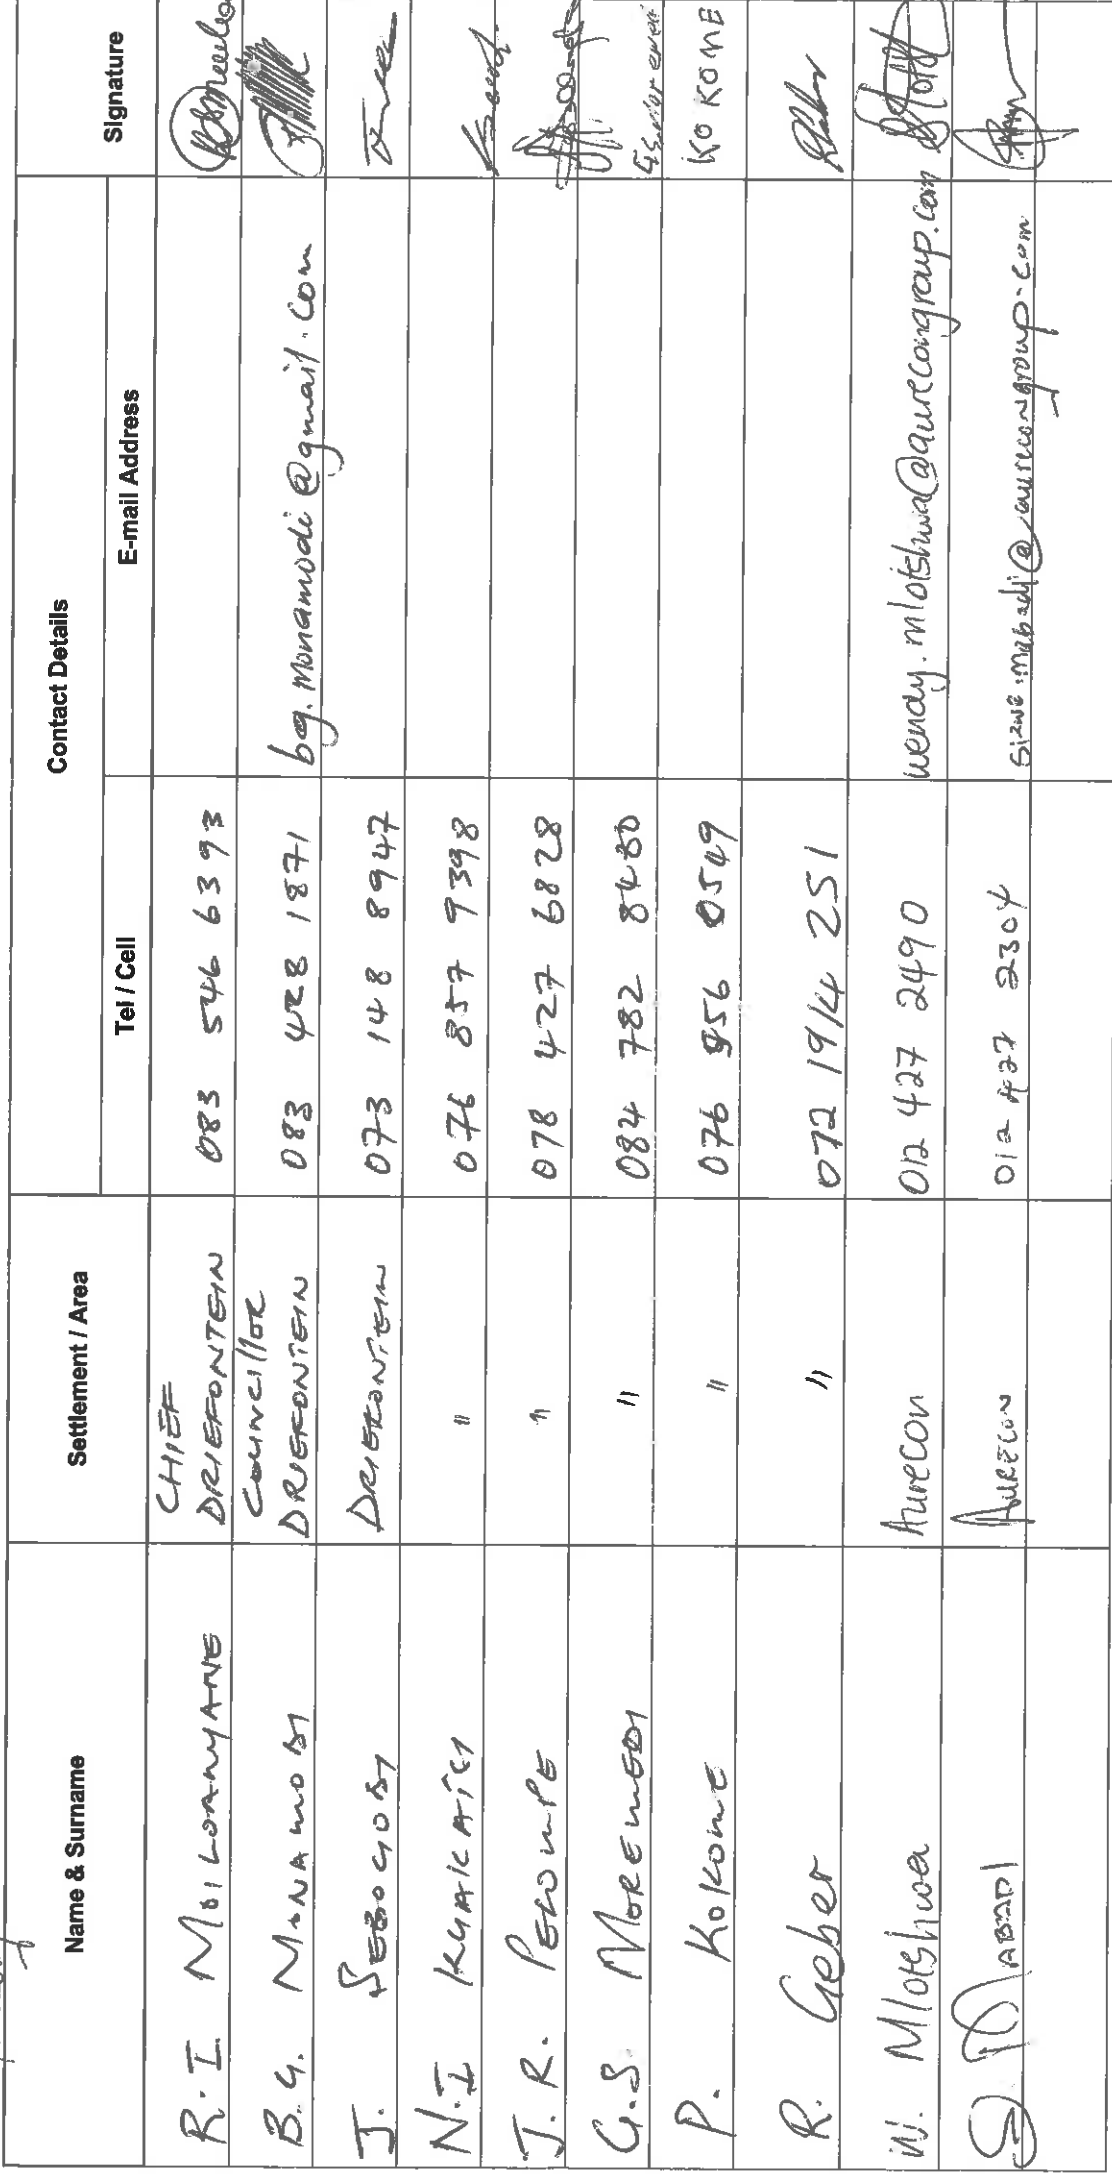 Name & Surname Settlement / Area Contact Details Signature
Tel / Cell E-mail Address
CHIEF
R. I. MOILOANYANE DRIEFONTEIN 083 546 6393
Councillor
B. G. MONAMODI DRIEFONTEIN 083 428 1871 bg.monamodi@gmail.com
J. SEBOGODI DRIEFONTEIN 073 148 8947
N. I 〃 076 857 9398
J. R. 〃 078 427 6828
G. S. MOREMEDI 〃 084 782
P. KOKOME 〃 076 956 0549 KOKOME
R. Geber 〃 072 19/4 251
W. Mlotshwa Aurecon 012 427 2490 wendy.mlotshwa@aurecongroup.com
S MABADI AURECON 012 427 2304 sizwe.mabadi@aurecongroup.com